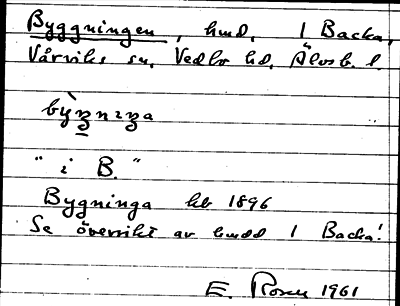 Byggningen, hmd. 1 Backa,
Vårviks sn. Vedbo hd. Älvsb. l.
bỳgnıŋa
" i B. "
Bygninga hb 1896
Se översikt av hmdd 1 Backa!
E. Rosell 1961